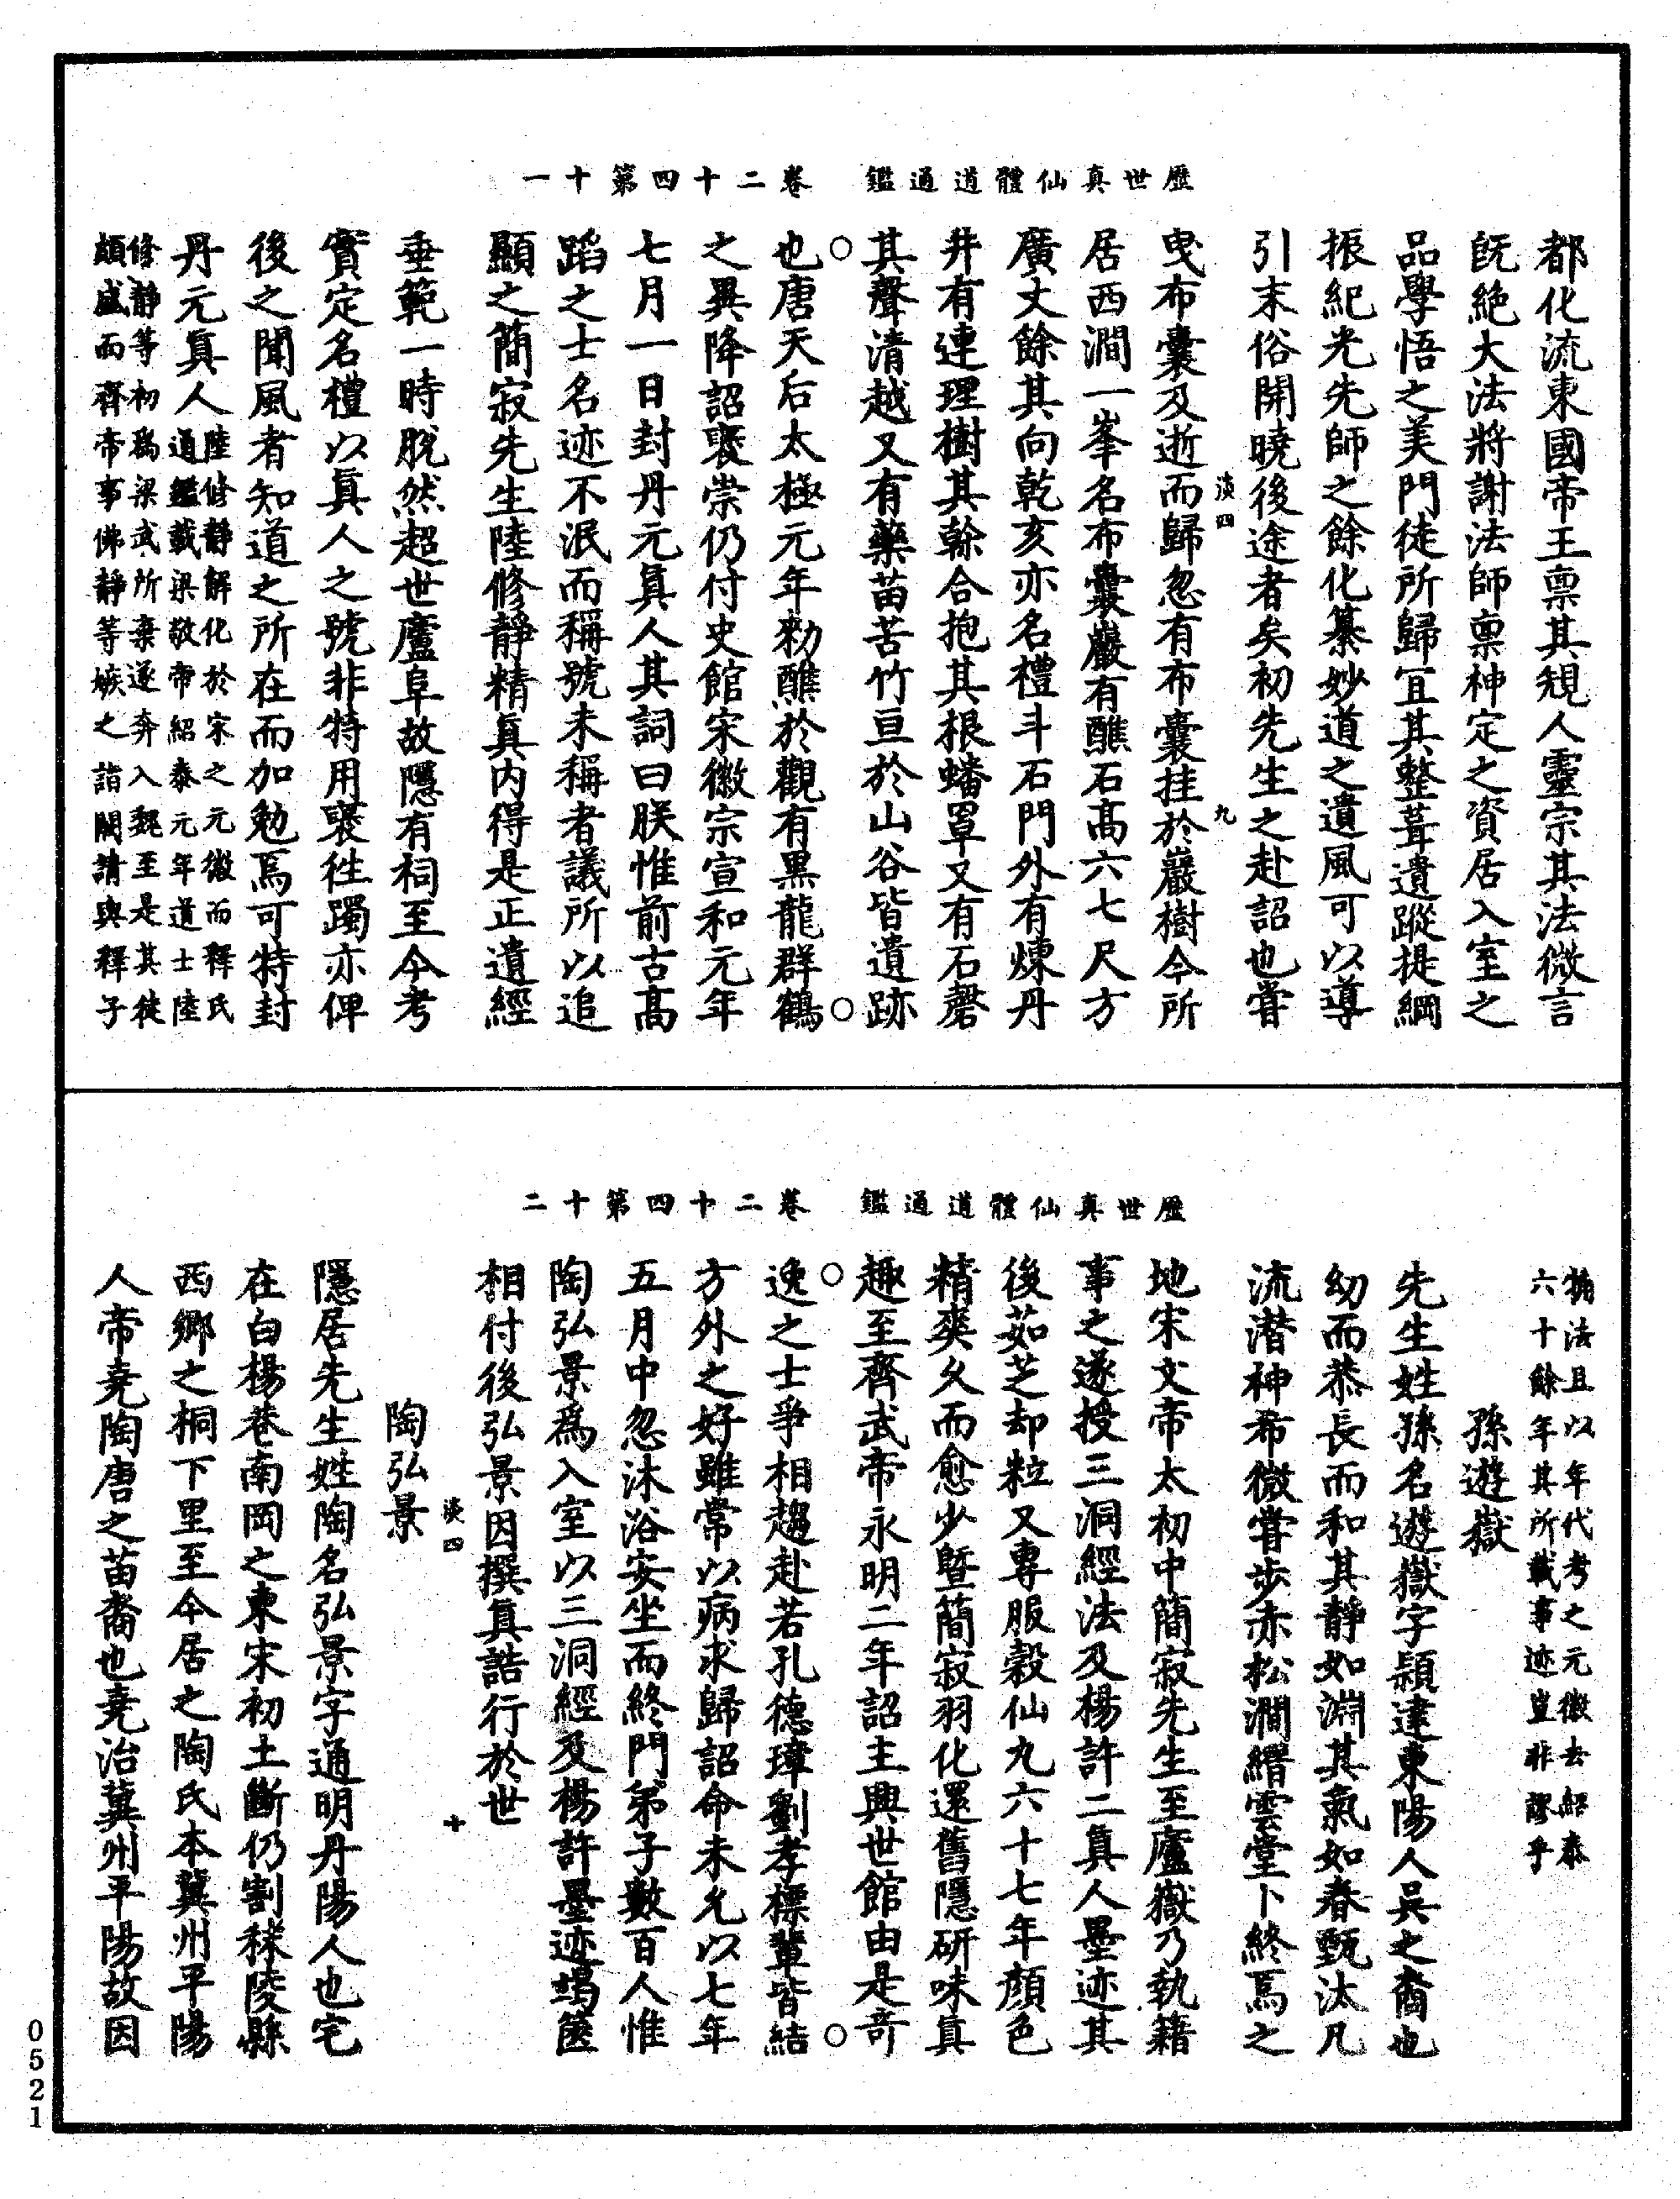 歷世真仙體道通鑑　卷二十四第十一
都化流東國帝王禀其規人靈宗其法微言
既絶大法將謝法師禀神定之資居入室之
品學悟之美門徒所歸宜其整葺遺蹤提綱
振紀光先師之餘化纂妙道之遺風可以導
引末俗開曉後途者矣初先生之赴詔也嘗
淡四　九
曳布囊及逝而歸忽有布囊挂於巖樹今所
居西澗一峯名布囊巖有醮石高六七尺方
廣丈餘其向乾亥亦名禮斗石門外有煉丹
井有連理樹其榦合抱其根蟠罩又有石磬
其聲清越又有藥苗苦竹亘於山谷皆遺跡
○　○
也唐天后太極元年勑醮於觀有黑龍群鶴
之異降詔襃崇仍付史館宋徽宗宣和元年
七月一日封丹元真人其詞曰朕惟前古高
蹈之士名迹不泯而稱號未稱者議所以追
顯之簡寂先生陸修靜精真内得是正遺經
垂範一時脫然超世廬阜故隱有祠至今考
實定名禮以真人之號非特用襃徃躅亦俾
後之聞風者知道之所在而加勉焉可特封
丹元真人
陸修靜解化於宋之元徽而釋氏
通鑑載梁敬帝紹泰元年道士陸
修静等初爲梁武所棄遂奔入魏至是其徒
頗盛而齊帝事佛靜等嫉之詣闕請與釋子
歷世真仙體道通鑑　卷二十四第十二
捔法且以年代考之元徽去紹泰
六十餘年其所載事迹豈非謬乎
孫遊嶽
先生姓孫名遊嶽字穎達東陽人吳之裔也
幼而恭長而和其靜如淵其氣如春甄汰凡
流潛神希微嘗步赤松澗縉雲堂卜終焉之
地宋文帝太初中簡寂先生至廬嶽乃執籍
事之遂授三洞經法及楊許二真人墨迹其
後茹芝却粒又專服穀仙九六十七年顏色
精爽久而愈少暨簡寂羽化還舊隱研味真
趣至齊武帝永明二年詔主興世館由是奇
○　○
逸之士爭相趨赴若孔德璋劉孝標輩皆結
方外之好雖常以病求歸詔命未允以七年
五月中忽沐浴安坐而終門弟子數百人惟
陶弘景爲入室以三洞經及楊許墨迹竭篋
相付後弘景因撰真誥行於世
淡四　十
陶弘景
隱居先生姓陶名弘景字通明丹陽人也宅
在白楊巷南岡之東宋初土斷仍割秣陵縣
西鄉之桐下里至今居之陶氏本冀州平陽
人帝堯陶唐之苗裔也堯治冀州平陽故因
0521